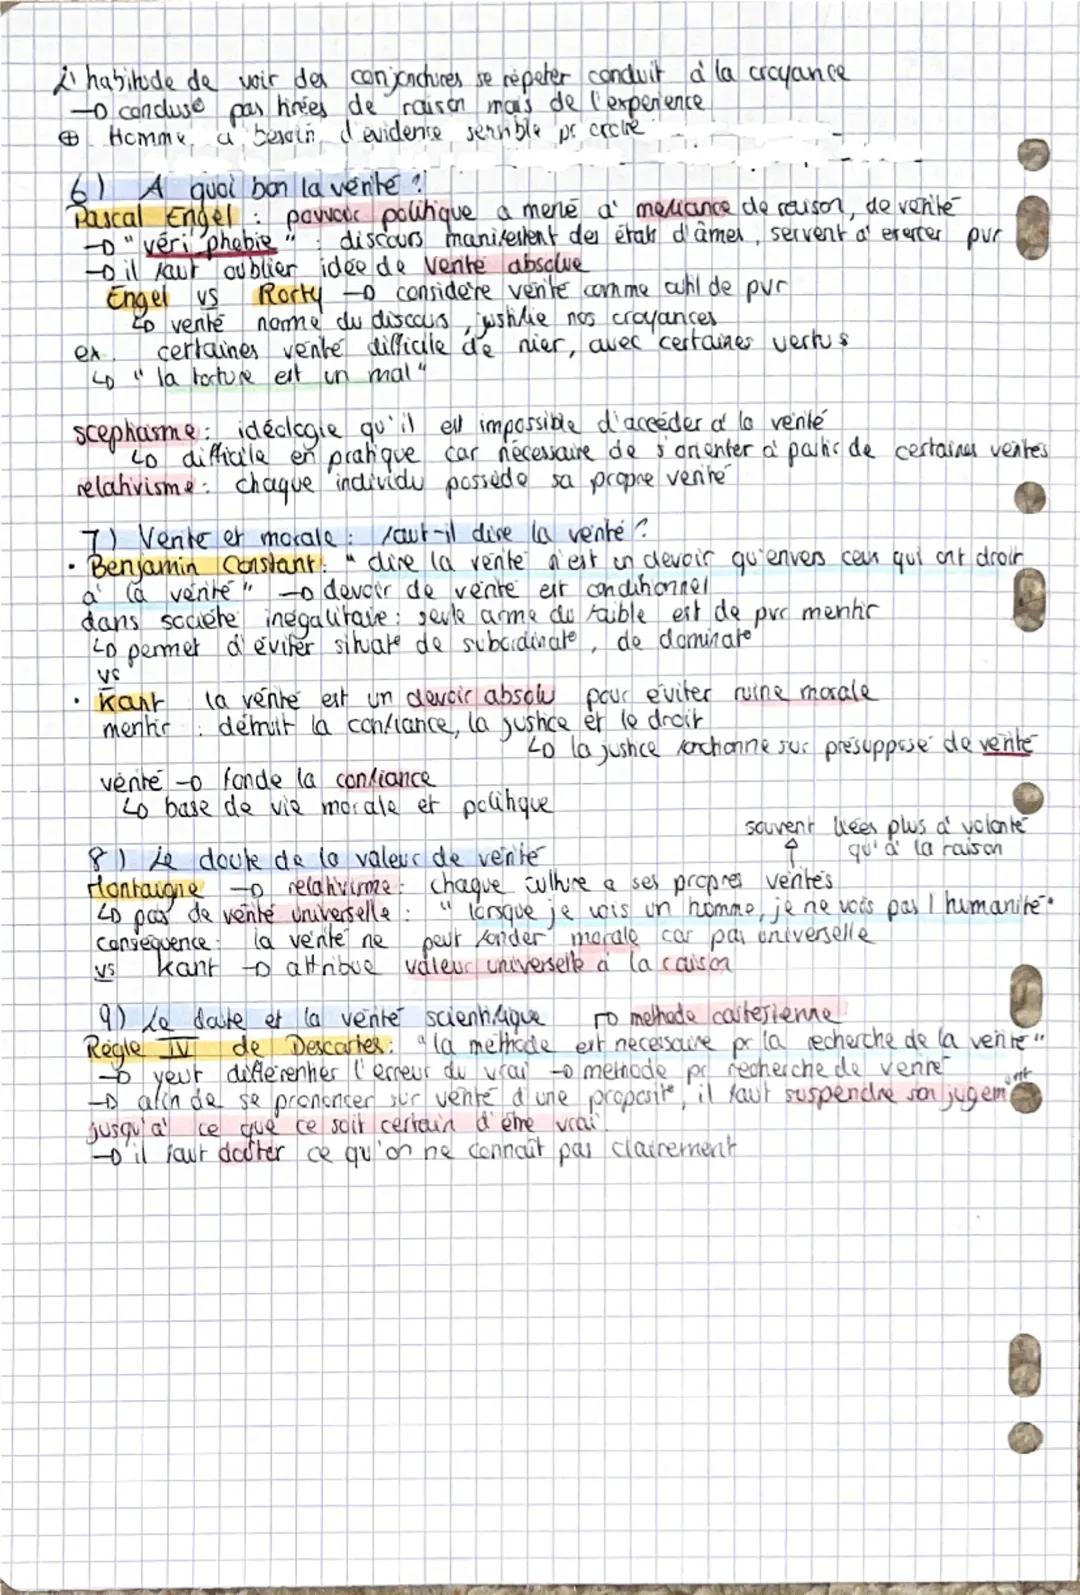 L'habitude de voir des conjonctures se répéter conduit à la croyance
→ conclus° pas tirées de raison mais de l'expérience
⊕ Homme a besoin d'évidence sensible pr croire
6) A quoi bon la vérité ?
Pascal Engel : pouvoir politique a mené à méfiance de raison, de vérité
→ "véri phobie" : discours manifestent des états d'âmes, servent à exercer pvr
→ il faut oublier idée de vérité absolue
Engel vs Rorty → considère vérité comme outil de pvr
↳ vérité norme du discours, justifie nos croyances
ex. certaines vérité difficile de nier, avec certaines vertus
↳ "la torture est un mal"
scepticisme : idéologie qu'il est impossible d'accéder à la vérité
↳ difficile en pratique car nécessaire de s'orienter à partir de certaines vérités
relativisme : chaque individu possède sa propre vérité
7) Vérité et morale : faut-il dire la vérité ?
• Benjamin Constant : "dire la vérité n'est un devoir qu'envers ceux qui ont droit
à la vérité" → devoir de vérité est conditionnel
dans société inégalitaire : seule arme du faible est de pvr mentir
↳ permet d'éviter situat° de subordinat°, de dominat°
vs
• Kant la vérité est un devoir absolu pour éviter ruine morale
mentir : détruit la confiance, la justice et le droit
↳ la justice fonctionne sur présupposé de vérité
vérité → fonde la confiance
↳ base de vie morale et politique
souvent liées plus à volonté
qu'à la raison
8) Le doute de la valeur de vérité
Montaigne → relativisme : chaque culture a ses propres vérités
↳ pas de vérité universelle : "lorsque je vois un homme, je ne vois pas l'humanité"
conséquence : la vérité ne peut fonder morale car pas universelle
vs Kant → attribue valeur universelle à la raison
9) Le doute et la vérité scientifique ↱ méthode cartésienne
Règle IV de Descartes : "la méthode est nécessaire pr la recherche de la vérité"
→ veut différentier l'erreur du vrai → méthode pr recherche de vérité
→ afin de se prononcer sur vérité d'une proposit°, il faut suspendre son jugem^ent
jusqu'à ce que ce soit certain d'être vrai
→ il faut douter ce qu'on ne connaît pas clairement